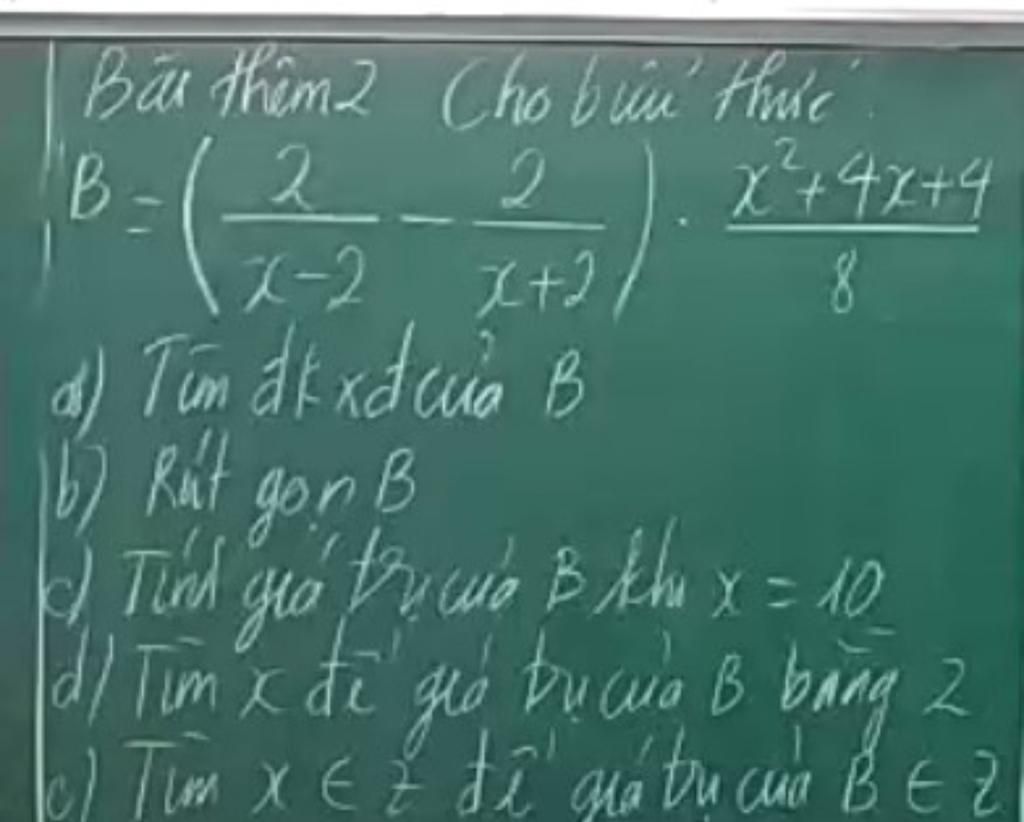 Bài thêm 2 Cho biểu thức:
B = (2/(x-2) - 2/(x+2)) . (x²+4x+4)/8
a) Tìm đkxđ của B
b) Rút gọn B
c) Tính giá trị của B khi x = 10
d) Tìm x để giá trị của B bằng 2
e) Tìm x ∈ Z để giá trị của B ∈ Z